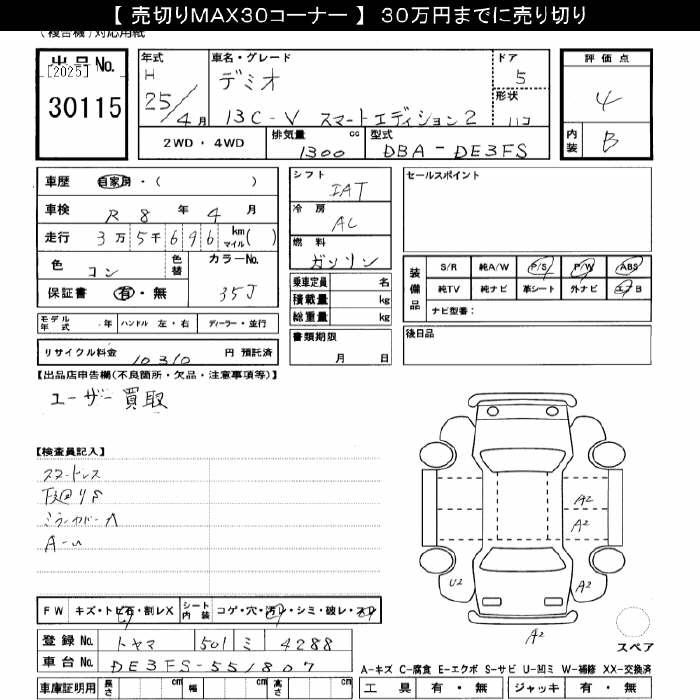 【 売切りMAX30コーナー 】 30万円までに売り切り
(複合機)対応用紙
出品No.
[2025]
30115
年式
H
25/4月
車名・グレード
デミオ
13C-V スマートエディション2
ドア
5
形状
評価点
4
内装
B
2WD・4WD
排気量 cc
1300
型式
DBA-DE3FS
車歴 自家用・( )
車検 R 8 年 4 月
走行 3万5千696 km マイル( )
色 コン
色替
カラーNo.
35J
保証書 有・無
シフト
IAT
冷房
AC
燃料
ガソリン
乗車定員 名
積載量 kg
総重量 kg
書類期限
月 日
セールスポイント
装備品
S/R 純A/W P/S P/W ABS
純TV 純ナビ 革シート 外ナビ エアB
ナビ型番:
後日品
モデル年式 年 ハンドル 左・右 ディーラー・並行
リサイクル料金 10310 円 預託済
【出品店申告欄(不良箇所・欠品・注意事項等)】
ユーザー買取
【検査員記入】
スマートレス
下廻りS
ミラーカバーA
A-U
A2
A2
U2
A2
A2
スペア
FW キズ・トビ石・割レX
シート内装 コゲ・穴・汚レ・シミ・破レ・スレ
登録No. トヤマ 501 ミ 4288
車台No. DE3FS-551807
車庫証明用 長さ cm 幅 cm 高さ cm
A-キズ C-腐食 E-エクボ S-サビ U-凹ミ W-補修 XX-交換済
工具 有・無 ジャッキ 有・無